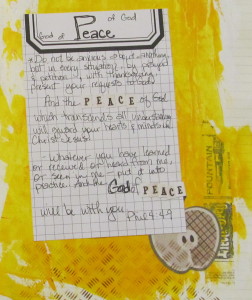 of God
God of Peace
"Do not be anxious about anything,
but in every situation, by prayer
& petition, with thanksgiving
present your requests to God.
And the PEACE of God
which transcends all understanding
will guard your hearts & minds in
Christ Jesus!
Whatever you have learned
or received or heard from me,
or seen in me - put it into
practice. And the God of PEACE
will be with you.
Phil 4:
FOUNTAIN